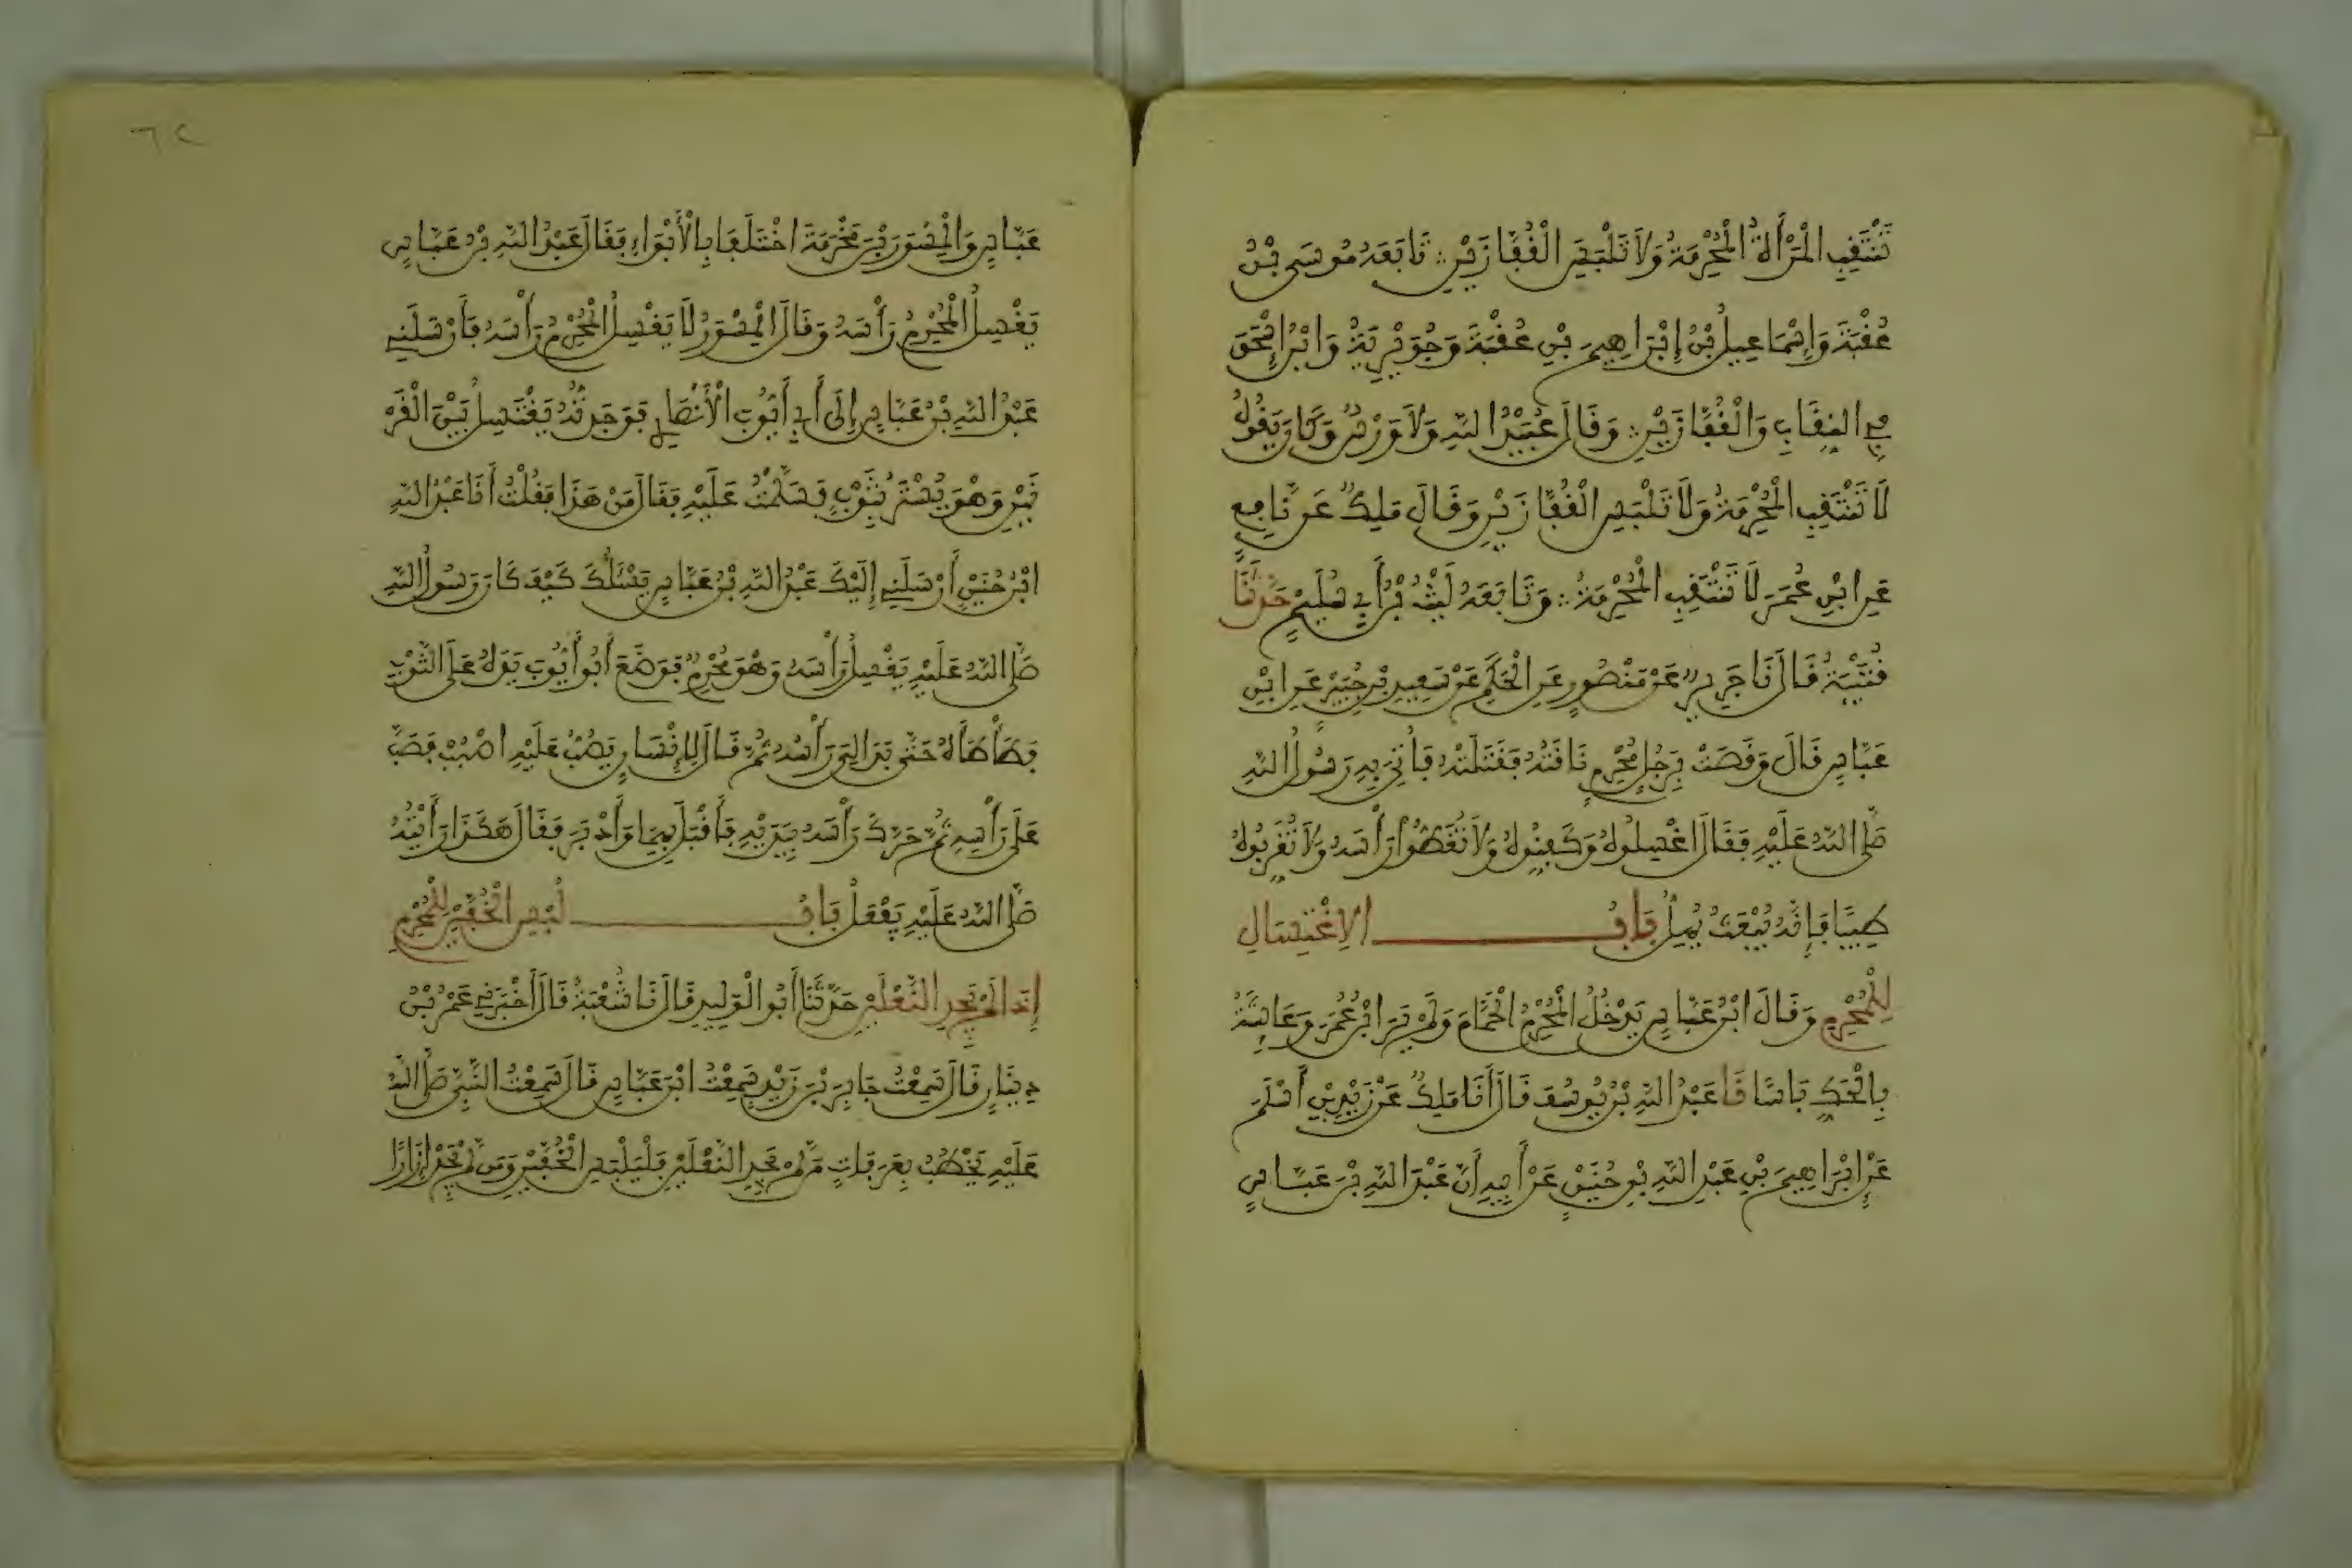 تَنْتَقِبِ الْمَرْأَةُ الْمُحْرِمَةُ وَلَا تَلْبَسِ الْقُفَّازَيْنِ تَابَعَهُ مُوسَى بْنُ
عُقْبَةَ وَإِسْمَاعِيلُ بْنُ إِبْرَاهِيمَ بْنِ عُقْبَةَ وَجُوَيْرِيَةُ وَابْنُ إِسْحَقَ
فِي النِّقَابِ وَالْقُفَّازَيْنِ وَقَالَ عُبَيْدُ اللَّهِ وَلَا وَرْسٌ وَكَانَ يَقُولُ
لَا تَنْتَقِبِ الْمُحْرِمَةُ وَلَا تَلْبَسِ الْقُفَّازَيْنِ وَقَالَ مَلِكٌ عَن نَّافِعٍ
عَنِ ابْنِ عُمَرَ لَا تَنْتَقِبِ الْمُحْرِمَةُ وَتَابَعَهُ لَيْثُ بْنُ أَبِي سُلَيْمٍ حَدَّثَنَا
قُتَيْبَةُ قَالَ نَا جَرِيرٌ عَنْ مَنْصُورٍ عَنِ الْحَكَمِ عَنْ سَعِيدِ بْنِ جُبَيْرٍ عَنِ ابْنِ
عَبَّاسٍ قَالَ وَقَصَتْ بِرَجُلٍ مُحْرِمٍ نَاقَتُهُ فَقَتَلَتْهُ فَأُتِيَ بِهِ رَسُولُ اللَّهِ
صَلَّى اللَّهُ عَلَيْهِ فَقَالَ اغْسِلُوهُ وَكَفِّنُوهُ وَلَا تُغَطُّوا رَأْسَهُ وَلَا تُقَرِّبُوهُ
طِيبًا فَإِنَّهُ يُبْعَثُ يُهِلُّ بَابُ الِاغْتِسَالِ
لِلْمُحْرِمِ وَقَالَ ابْنُ عَبَّاسٍ يَدْخُلُ الْمُحْرِمُ الْحَمَّامَ وَلَمْ يَرَ ابْنُ عُمَرَ وَعَائِشَةُ
بِالْحَكِّ بَاسًا نَا عَبْدُ اللَّهِ بْنُ يُوسُفَ قَالَ أَنَا مَلِكٌ عَنْ زَيْدِ بْنِ أَسْلَمَ
عَنْ إِبْرَاهِيمَ بْنِ عَبْدِ اللَّهِ بْنِ حُنَيْنٍ عَنْ أَبِيهِ أَنَّ عَبْدَ اللَّهِ بْنَ عَبَّاسٍ
٦٢
عَبَّاسٍ وَالْمِسْوَرَ بْنَ مَخْرَمَةَ اخْتَلَفَا بِالْأَبْوَاءِ فَقَالَ عَبْدُ اللَّهِ بْنُ عَبَّاسٍ
يَغْسِلُ الْمُحْرِمُ رَأْسَهُ وَقَالَ الْمِسْوَرُ لَا يَغْسِلُ الْمُحْرِمُ رَأْسَهُ فَأَرْسَلَنِي
عَبْدُ اللَّهِ بْنُ عَبَّاسٍ إِلَى أَبِي أَيُّوبَ الْأَنْصَارِي فَوَجَدتُّهُ يَغْتَسِلُ بَيْنَ الْقَرْ
نَيْنِ وَهْوَ يُسْتَرُ بِثَوْبٍ فَسَلَّمْتُ عَلَيْهِ فَقَالَ مَنْ هَذَا فَقُلْتُ أَنَا عَبْدُ اللَّهِ
ابْنُ حُنَيْنٍ أَرْسَلَنِي إِلَيْكَ عَبْدُ اللَّهِ بْنُ عَبَّاسٍ يَسْئَلُكَ كَيْفَ كَانَ رَسُولُ اللَّهِ
صَلَّى اللَّهُ عَلَيْهِ يَغْسِلُ رَأْسَهُ وَهْوَ مُحْرِمٌ فَوَضَعَ أَبُو أَيُّوبَ يَدَهُ عَلَى الثَّوْبِ
فَطَأْطَأَهُ حَتَّى بَدَا لِي رَأْسُهُ ثُمَّ قَالَ لِإِنْسَانٍ يَصُبُّ عَلَيْهِ اصْبُبْ فَصَبَّ
عَلَى رَأْسِهِ ثُمَّ حَرَّكَ رَأْسَهُ بِيَدَيْهِ فَأَقْبَلَ بِهِمَا وَأَدْبَرَ فَقَالَ هَكَذَا رَأَيْتُهُ
صَلَّى اللَّهُ عَلَيْهِ يَفْعَلُ بَابُ لُبْسِ الْخُفَّيْنِ لِلْمُحْرِمِ
إِذَا لَمْ يَجِدِ النَّعْلَيْنِ حَدَّثَنَا أَبُو الْوَلِيدِ قَالَ نَا شُعْبَةُ قَالَ أَخْبَرَنِي عَمْرُ بْنُ
دِينَارٍ قَالَ سَمِعْتُ جَابِرَ بْنَ زَيْدٍ سَمِعْتُ ابْنَ عَبَّاسٍ قَالَ سَمِعْتُ النَّبِيَّ صَلَّى اللَّهُ
عَلَيْهِ يَخْطُبُ بِعَرَفَاتٍ مَن لَّمْ يَجِدِ النَّعْلَيْنِ فَلْيَلْبَسِ الْخُفَّيْنِ وَمَن لَّمْ يَجِدْ إِزَارًا